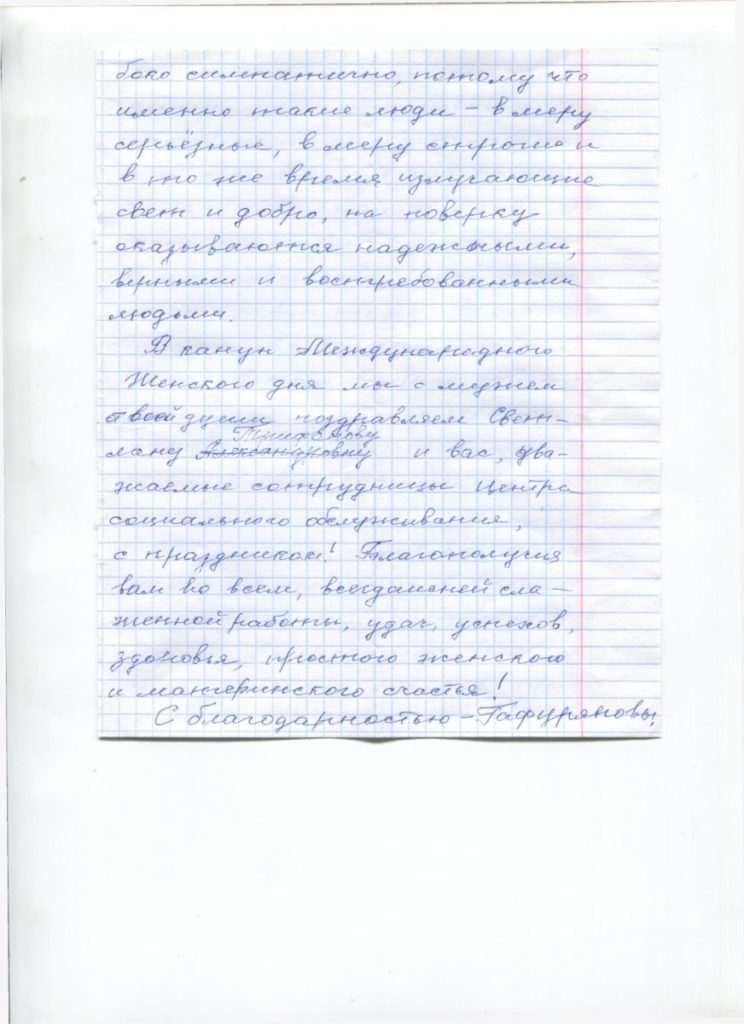 боко симпатично, потому что
именно такие люди – в меру
серьёзные, в меру строгие и
в то же время излучающие
свет и добро, на поверку
оказываются надежными,
верными и востребованными
людьми.
В канун Международного
Женского дня мы с мужем
от всей души поздравляем Свет-
лану Александровну и вас, ува-
жаемые сотрудницы Центра
социального обслуживания,
с праздником! Благополучия
вам во всем, всегдашней сла-
женной работы, удач, успехов,
здоровья, простого женского
и материнского счастья!
С благодарностью – Гафуряновы.